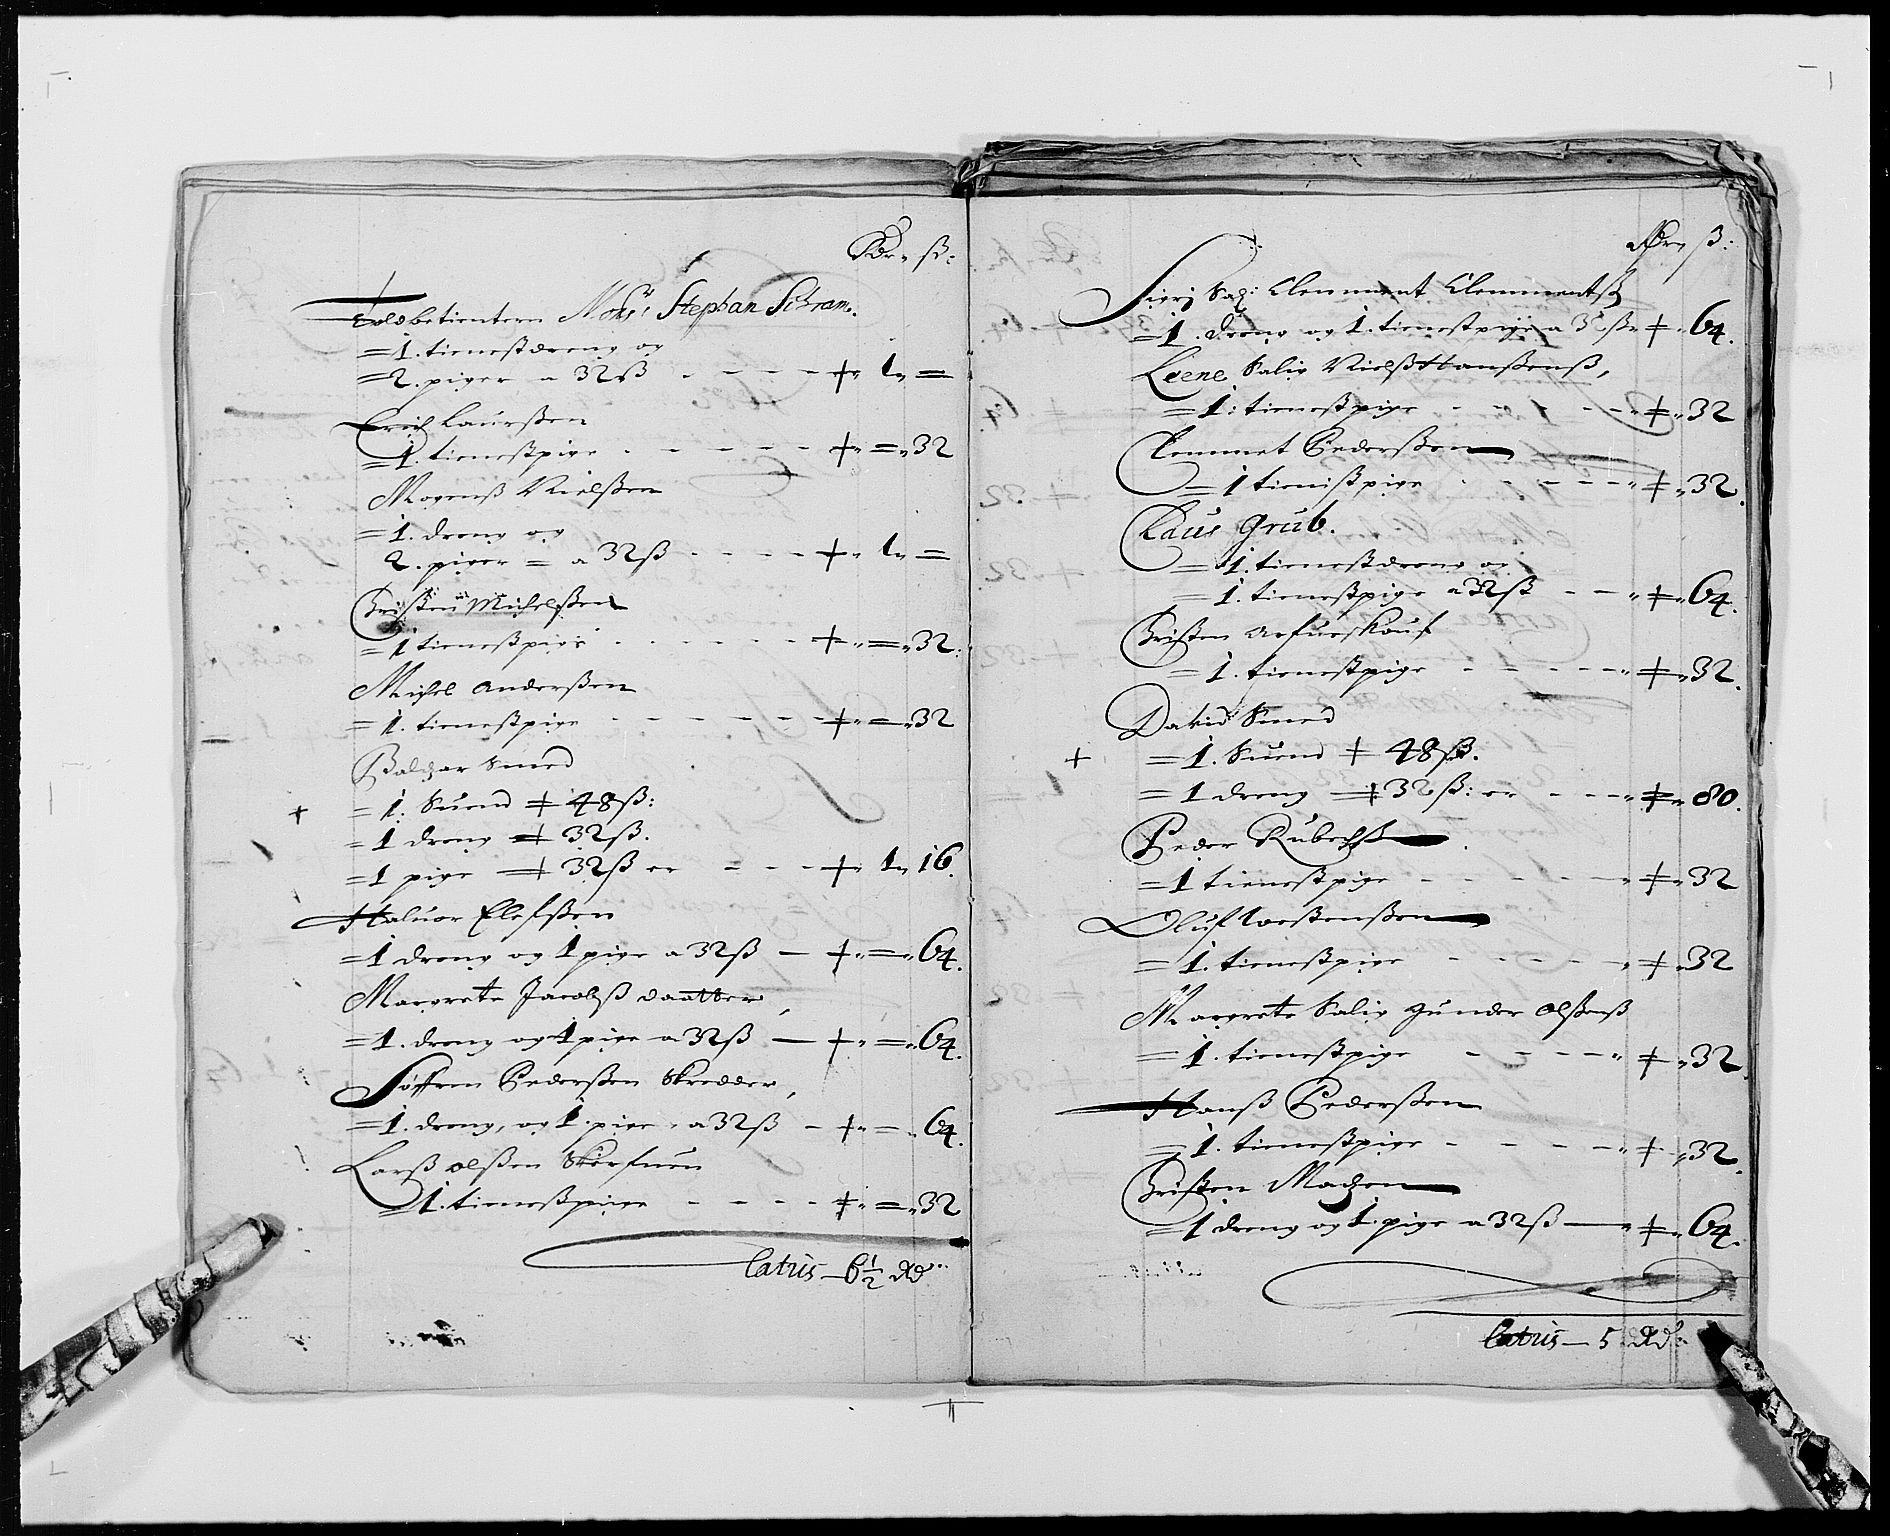 Rdr ß:
Toldbetienten Monsr Stephan Schram.
= 1. tienestdreng og
= 2. piger a 32 ß - - - - + 1 =
Erich Laurßen
= 1. tienestpige - - - - + = 32
Mogenß Nielßen
= 1. dreng og
2. piger = a 32 ß - - - - + 1 =
Christen Michelßen
= 1 tienestpige - - - - + = 32:
Michel Anderßen
= 1. tienestpige - - - - + = 32
Balzar Smed
+ = 1: Suend + 48 ß:
= 1 dreng + 32 ß.
= 1 pige + 32 ß er - - - + 1 16.
Haluor Elefßen
= 1 dreng og 1 pige a 32 ß - + = 64.
Margrete Jacobß daatter,
= 1. dreng og 1 pige a 32 ß - + = 64.
Søffren Pederßen Skredder,
= 1. dreng, og 1. pige a 32 ß - + = 64.
Larß Olßen
= 1. tienestpige - - - - + = 32
Latus - 6 1/2 Rd
Rdr ß:
Sal: Clemment Clemmentß
= 1. dreng og 1. tienestpige a 32 ß + 64.
Leene Salig Nielß Hanßenß,
= 1: tienestpige - - - - + 32
Clemmet Pederßen
= 1 tienistpige - - - - + 32.
Claus Grub.
= 1. tienestdreng og
= 1. tienestpige a 32 ß - - + 64.
Christen
= 1. tienestpige - - - - + 32.
David Smed
+ = 1. Suend + 48 ß.
= 1 dreng + 32 ß: er - - - + 80.
Peder
= 1 tienestpige - - - - + 32
Oluf Torstenßen
= 1. tienestpige - - - - + 32
Margrete Salig Gunder Olßenß
= 1. tienestpige - - - - + 32.
Hanß Pederßen
= 1. tienestpige - - - - + 32.
Christen Madzen
= 1 dreng og 1. pige a 32 ß - + 64.
Latus - 5 Rdr